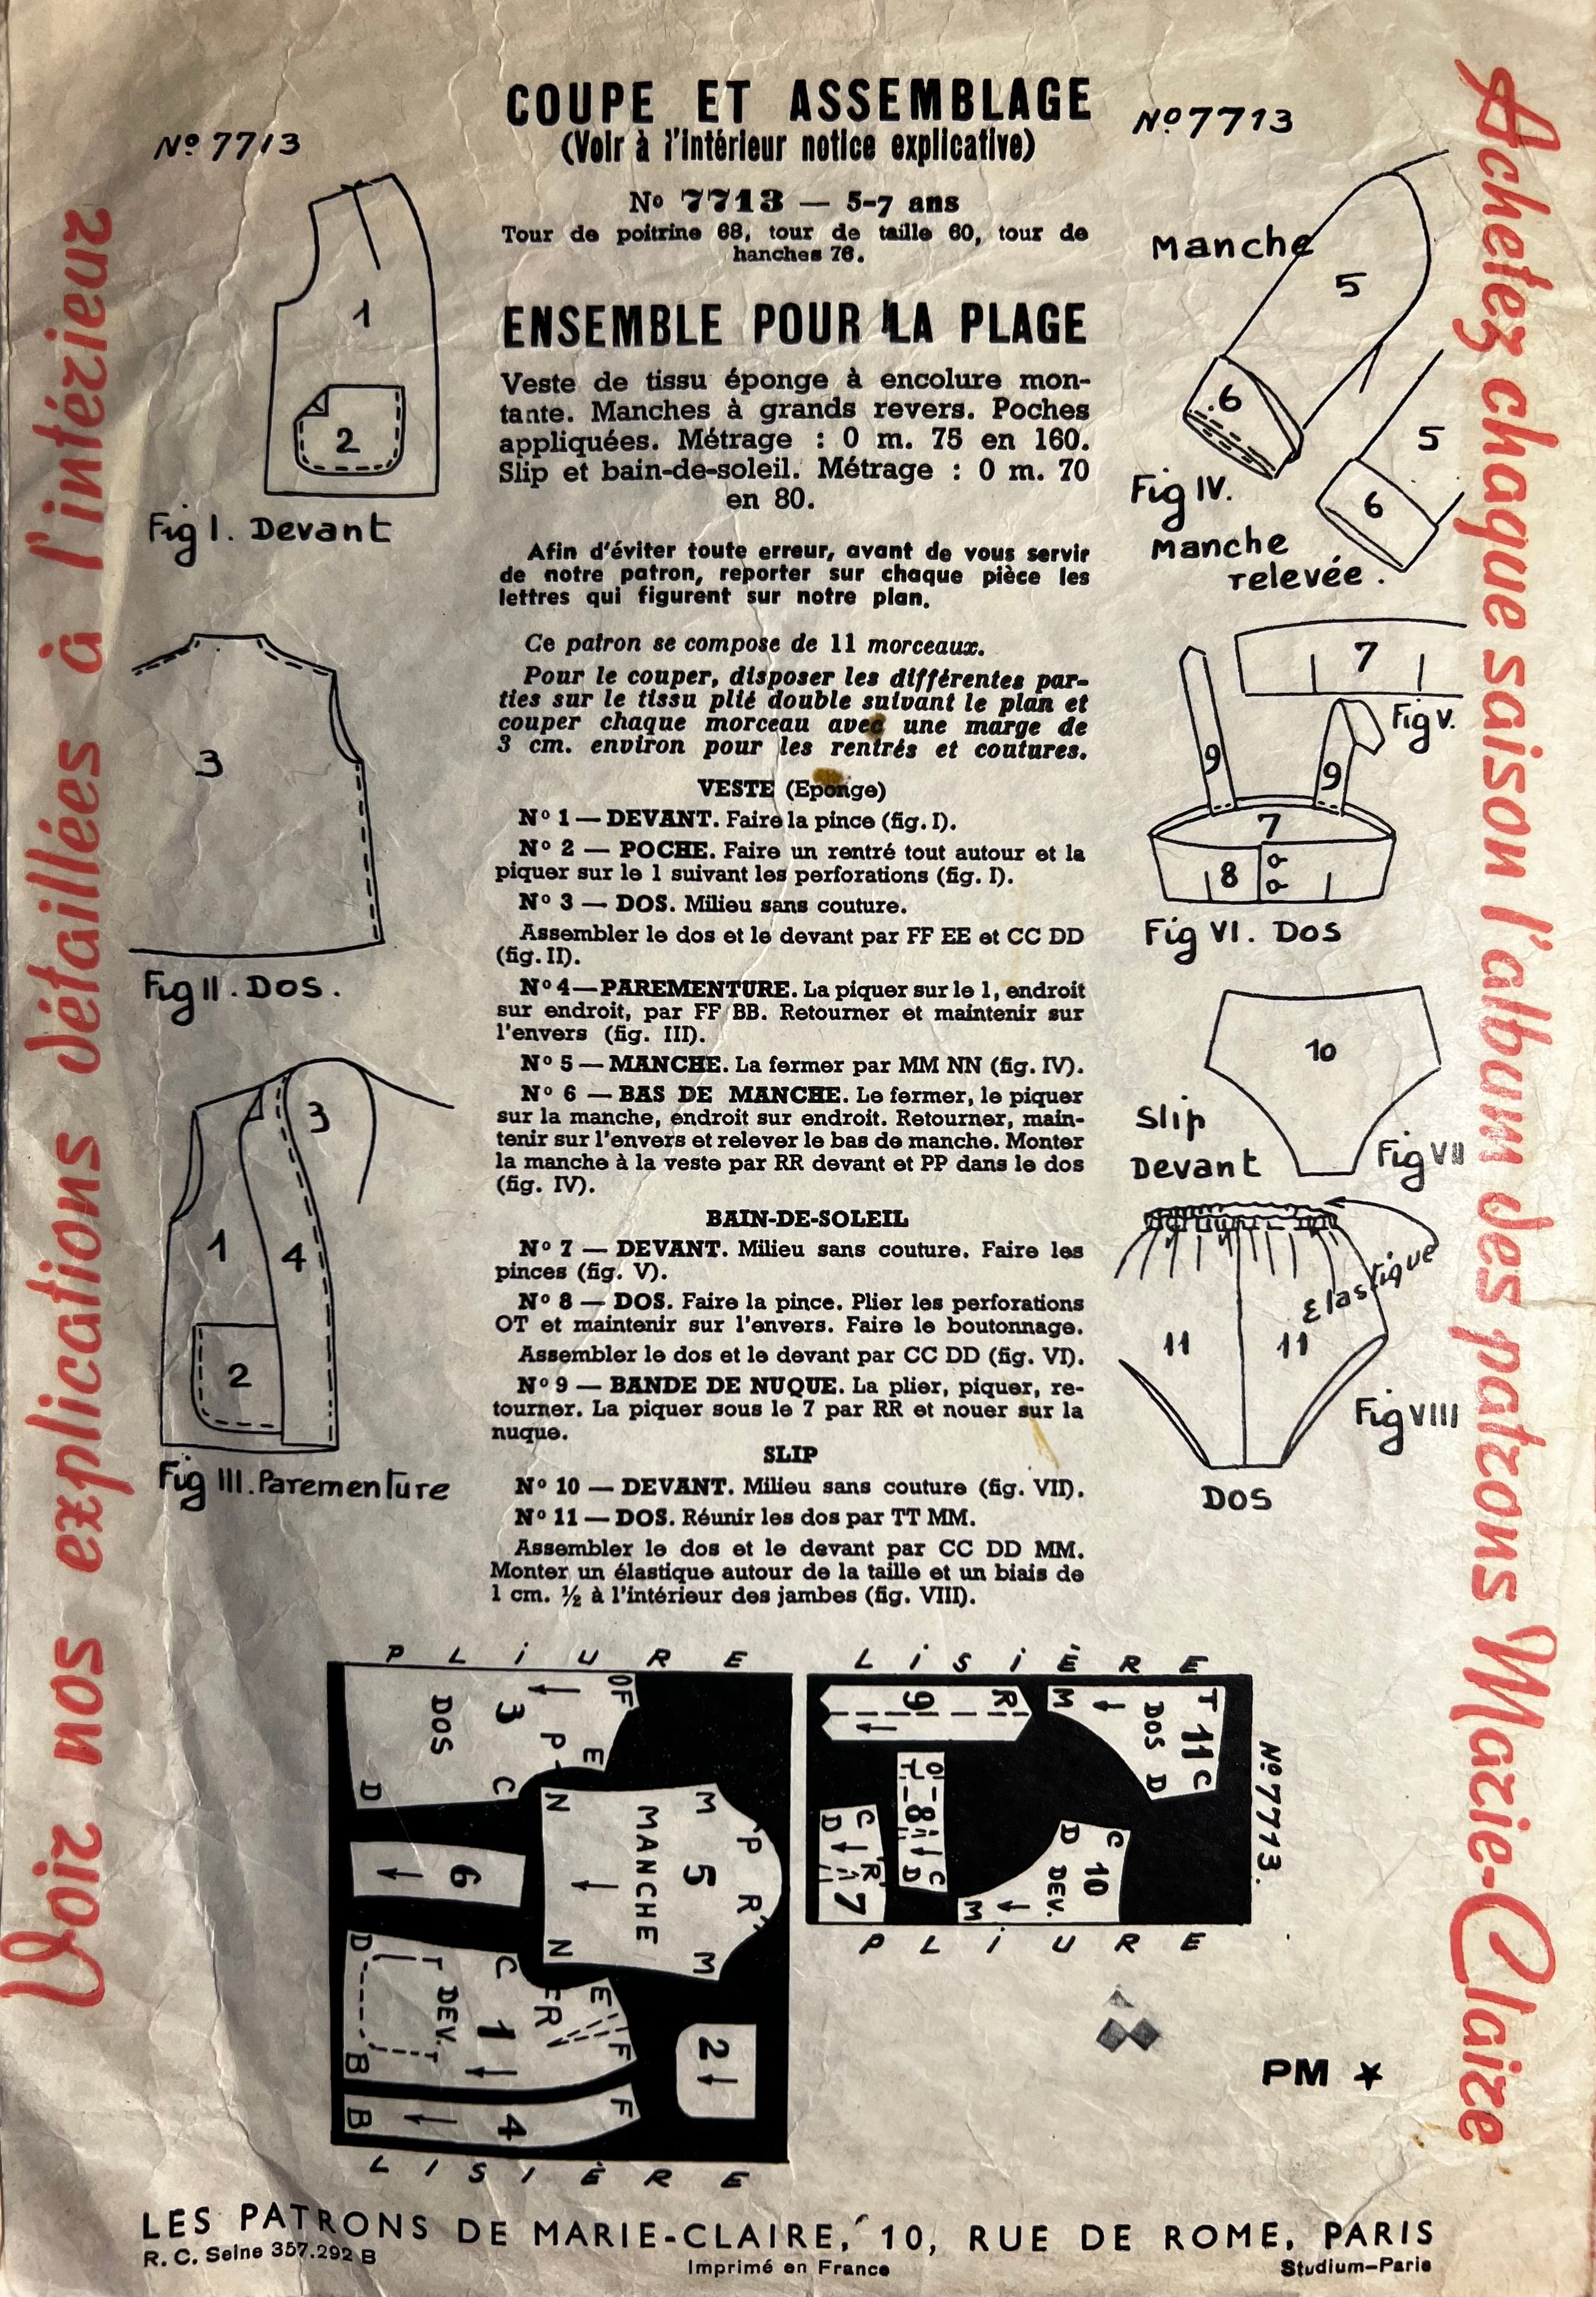 COUPE ET ASSEMBLAGE
(Voir à l'intérieur notice explicative)
Nº 7713
Nº 7713
Nº 7713 — 5-7 ans
Tour de poitrine 68, tour de taille 60, tour de
hanches 76.
ENSEMBLE POUR LA PLAGE
Veste de tissu éponge à encolure mon-
tante. Manches à grands revers. Poches
appliquées. Métrage : 0 m. 75 en 160.
Slip et bain-de-soleil. Métrage : 0 m. 70
en 80.
Afin d'éviter toute erreur, avant de vous servir
de notre patron, reporter sur chaque pièce les
lettres qui figurent sur notre plan.
Ce patron se compose de 11 morceaux.
Pour le couper, disposer les différentes par-
ties sur le tissu plié double suivant le plan et
couper chaque morceau avec une marge de
3 cm. environ pour les rentrés et coutures.
VESTE (Eponge)
Nº 1 — DEVANT. Faire la pince (fig. I).
Nº 2 — POCHE. Faire un rentré tout autour et la
piquer sur le 1 suivant les perforations (fig. I).
Nº 3 — DOS. Milieu sans couture.
Assembler le dos et le devant par FF EE et CC DD
(fig. II).
Nº 4 — PAREMENTURE. La piquer sur le 1, endroit
sur endroit, par FF BB. Retourner et maintenir sur
l'envers (fig. III).
Nº 5 — MANCHE. La fermer par MM NN (fig. IV).
Nº 6 — BAS DE MANCHE. Le fermer, le piquer
sur la manche, endroit sur endroit. Retourner, main-
tenir sur l'envers et relever le bas de manche. Monter
la manche à la veste par RR devant et PP dans le dos
(fig. IV).
BAIN-DE-SOLEIL
Nº 7 — DEVANT. Milieu sans couture. Faire les
pinces (fig. V).
Nº 8 — DOS. Faire la pince. Plier les perforations
OT et maintenir sur l'envers. Faire le boutonnage.
Assembler le dos et le devant par CC DD (fig. VI).
Nº 9 — BANDE DE NUQUE. La plier, piquer, re-
tourner. La piquer sous le 7 par RR et nouer sur la
nuque.
SLIP
Nº 10 — DEVANT. Milieu sans couture (fig. VII).
Nº 11 — DOS. Réunir les dos par TT MM.
Assembler le dos et le devant par CC DD MM.
Monter un élastique autour de la taille et un biais de
1 cm. ½ à l'intérieur des jambes (fig. VIII).
Voir nos explications détaillées à l'intérieur
1
2
Fig I. Devant
3
Fig II. Dos.
3
1
4
2
Fig III. Parementure
Manche
5
6
5
6
Fig IV.
Manche
relevée.
7
Fig V.
9
9
7
8
Fig VI. Dos
10
Slip
Devant
Fig VII
Elastique
11
11
Fig VIII
Dos
Achetez chaque saison l'album des patrons Marie-Claire
PLIURE
3
DOS
O F
P E
D C
6
N M
MANCHE
5
P
R
N M
D T C E
DEV.
1
F R
F
B T
2
B 4 F
LISIÈRE
LISIÈRE
9 R
M T
DOS
11
D C
O
T
8
C
D
C
D
R
7
D C
10
DEV.
M
PLIURE
Nº 7713.
PM ★
LES PATRONS DE MARIE-CLAIRE, 10, RUE DE ROME, PARIS
R. C. Seine 357.292 B
Imprimé en France
Studium-Paris